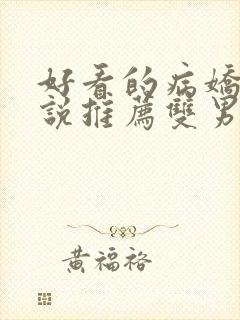 好看的病嬌
說推薦雙男
黃福裕